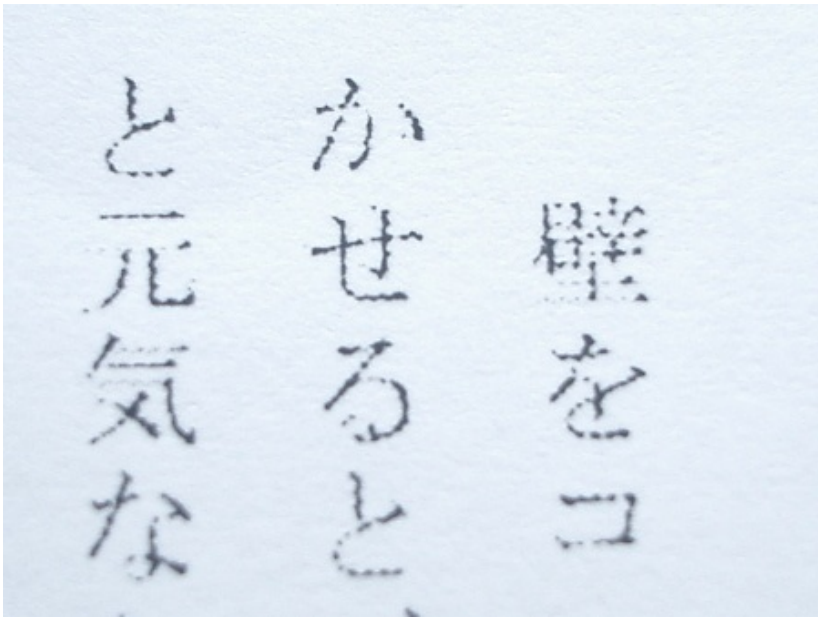 壁をコ
かせると
と元気な